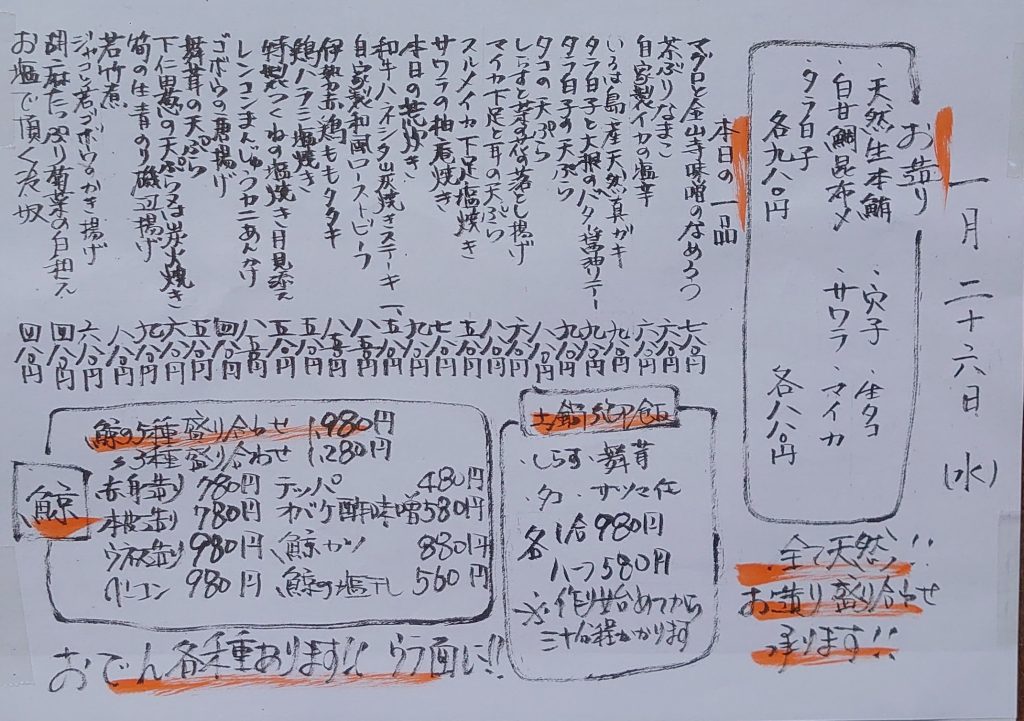 一月二十六日(水)
お造り
・天然生本鮪 ・穴子 ・生タコ
・白甘鯛昆布〆 ・サワラ ・マイカ
・タラ白子
各九八〇円 各八八〇円
全て天然!!
お造り盛り合わせ
承ります!!
本日の一品
マグロと金山寺味噌のなめろう 七八〇円
茶ぶりなまこ 六八〇円
自家製イカの塩辛 六八〇円
いろは島産天然真ガキ 九八〇円
タラ白子と大根のバター醤油ソテー 九八〇円
タラ白子の天ぷら 九八〇円
タコの天ぷら 八八〇円
しらすと菜の花の落とし揚げ 六八〇円
マイカ下足と耳の天ぷら 八八〇円
スルメイカ下足塩焼き 六八〇円
サワラの柚庵焼き 七八〇円
本日の荒炊き 九八〇円
和牛ハネシタ炭焼きステーキ 一、五八〇円
自家製和風ローストビーフ 八五〇円
伊勢赤鶏ももタタキ 八五〇円
鶏ハラミ塩焼き 五八〇円
特製つくねの塩焼き月見添え 五八〇円
レンコンまんじゅうカニあんかけ 八五〇円
ゴボウの唐揚げ 四八〇円
舞茸の天ぷら 五八〇円
下仁田葱の天ぷら又は炭火焼き 六八〇円
筍の生青のり磯辺揚げ 九八〇円
若竹煮 八八〇円
ジャコと若ゴボウのかき揚げ 六八〇円
胡麻たっぷり菊菜の白和え 四八〇円
お塩で頂く冷奴 四八〇円
土鍋御飯
・しらす ・舞茸
・タコ ・サツマ芋
各 1合980円
ハーフ580円
※作り始めてから
三十分程かかります
鯨
鯨の5種盛り合わせ 1,980円
〃3種盛り合わせ 1,280円
赤身造り 780円 テッパ 480円
本皮造り 780円 オバケ酢味噌 580円
ウネス造り 980円 鯨カツ 880円
ベーコン 980円 鯨の塩干し 560円
おでん各種あります!! ウラ面に!!